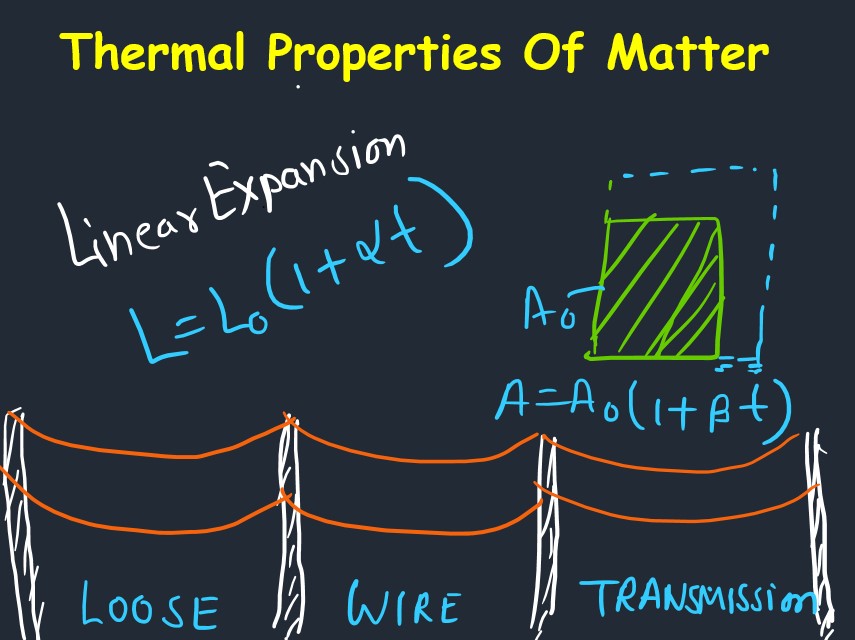 Thermal Properties Of Matter
Linear Expansion
L = L₀(1+αt)
A₀
A = A₀(1+βt)
LOOSE WIRE TRANSMISSION